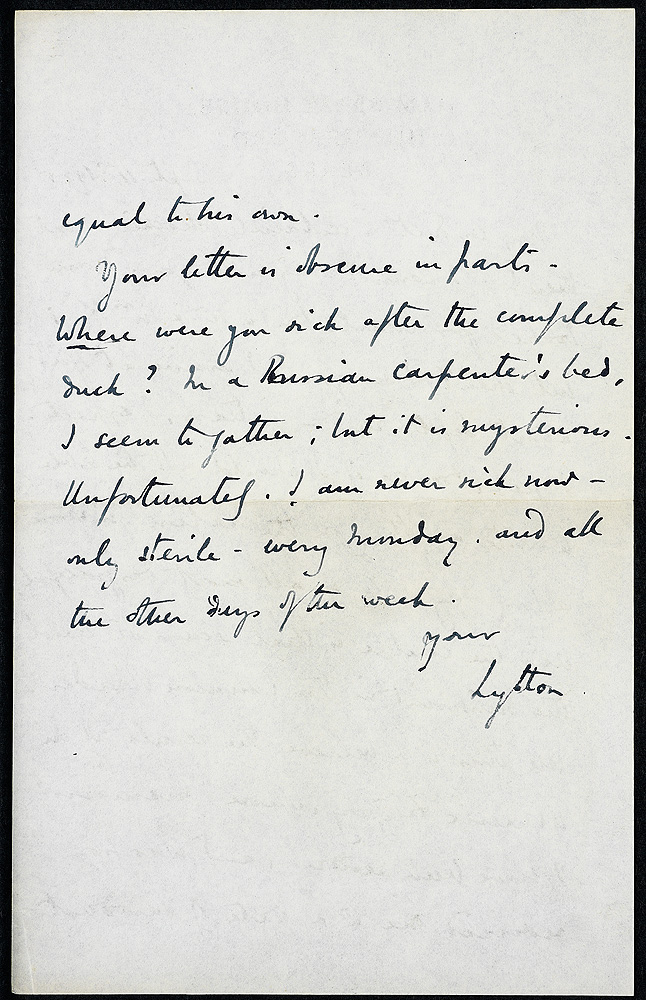 equal to his own.
Your letter is obscure in parts.
Where were you sick after the complete
duck? In a Russian carpenter's bed,
I seem to gather; but it is mysterious.
Unfortunately. I am never sick now –
only sterile – every Monday. and all
the other days of the week.
your
Lytton